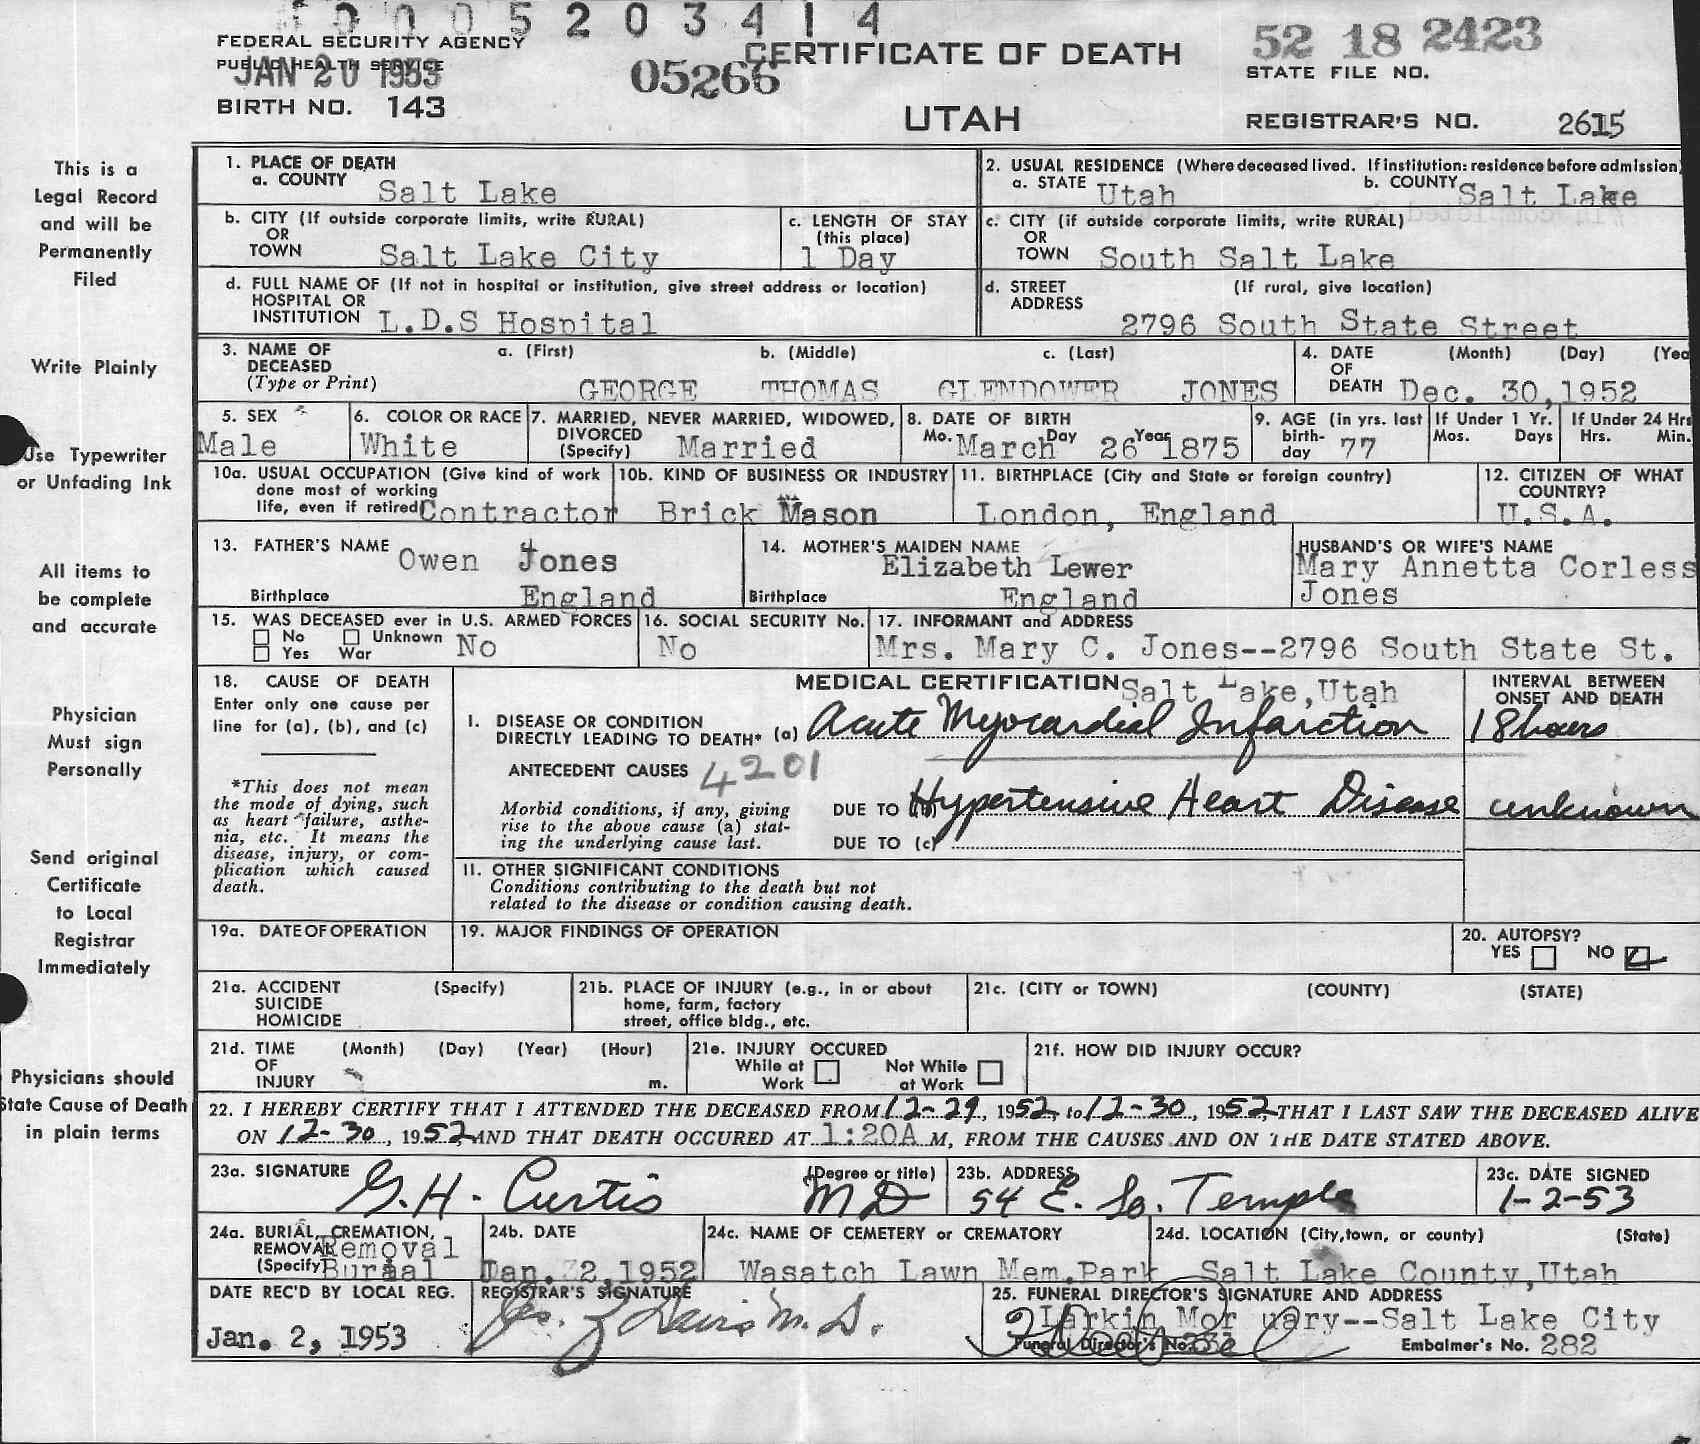 0005203414
FEDERAL SECURITY AGENCY
PUBLIC HEALTH SERVICE
JAN 20 1953
BIRTH NO. 143
05266
CERTIFICATE OF DEATH
UTAH
52 18 2423
STATE FILE NO.
REGISTRAR'S NO. 2615
This is a
Legal Record
and will be
Permanently
Filed
Write Plainly
Use Typewriter
or Unfading Ink
All items to
be complete
and accurate
Physician
Must sign
Personally
Send original
Certificate
to Local
Registrar
Immediately
Physicians should
State Cause of Death
in plain terms
1. PLACE OF DEATH
a. COUNTY Salt Lake
2. USUAL RESIDENCE (Where deceased lived. If institution: residence before admission)
a. STATE Utah b. COUNTY Salt Lake
b. CITY (If outside corporate limits, write RURAL)
OR
TOWN Salt Lake City
c. LENGTH OF STAY
(this place)
1 Day
c. CITY (if outside corporate limits, write RURAL)
OR
TOWN South Salt Lake
d. FULL NAME OF (If not in hospital or institution, give street address or location)
HOSPITAL OR
INSTITUTION L.D.S Hospital
d. STREET (If rural, give location)
ADDRESS
2796 South State Street
3. NAME OF a. (First) b. (Middle) c. (Last)
DECEASED
(Type or Print) GEORGE THOMAS GLENDOWER JONES
4. DATE (Month) (Day) (Yea
OF
DEATH Dec. 30,1952
5. SEX
Male
6. COLOR OR RACE
White
7. MARRIED, NEVER MARRIED, WIDOWED,
DIVORCED
(Specify) Married
8. DATE OF BIRTH
Mo. March Day 26 Year 1875
9. AGE (in yrs. last
birth-
day 77
If Under 1 Yr.
Mos. Days
If Under 24 Hrs
Hrs. Min.
10a. USUAL OCCUPATION (Give kind of work
done most of working
life, even if retired Contractor
10b. KIND OF BUSINESS OR INDUSTRY
Brick Mason
11. BIRTHPLACE (City and State or foreign country)
London, England
12. CITIZEN OF WHAT
COUNTRY?
U.S.A.
13. FATHER'S NAME Owen Jones
Birthplace England
14. MOTHER'S MAIDEN NAME
Elizabeth Lewer
Birthplace England
HUSBAND'S OR WIFE'S NAME
Mary Annetta Corless
Jones
15. WAS DECEASED ever in U.S. ARMED FORCES
No Unknown No
Yes War
16. SOCIAL SECURITY No.
No
17. INFORMANT and ADDRESS
Mrs. Mary C. Jones--2796 South State St.
Salt Lake,Utah
18. CAUSE OF DEATH
Enter only one cause per
line for (a), (b), and (c)
*This does not mean
the mode of dying, such
as heart failure, asthe-
nia, etc. It means the
disease, injury, or com-
plication which caused
death.
MEDICAL CERTIFICATION
INTERVAL BETWEEN
ONSET AND DEATH
I. DISEASE OR CONDITION
DIRECTLY LEADING TO DEATH* (a) Acute Myocardial Infarction 18 hours
ANTECEDENT CAUSES 4201
Morbid conditions, if any, giving
rise to the above cause (a) stat-
ing the underlying cause last.
DUE TO (b) Hypertensive Heart Disease unknown
DUE TO (c)
II. OTHER SIGNIFICANT CONDITIONS
Conditions contributing to the death but not
related to the disease or condition causing death.
19a. DATE OF OPERATION
19. MAJOR FINDINGS OF OPERATION
20. AUTOPSY?
YES NO
21a. ACCIDENT (Specify)
SUICIDE
HOMICIDE
21b. PLACE OF INJURY (e.g., in or about
home, farm, factory
street, office bldg., etc.
21c. (CITY or TOWN) (COUNTY) (STATE)
21d. TIME (Month) (Day) (Year) (Hour)
OF
INJURY m.
21e. INJURY OCCURED
While at Not While
Work at Work
21f. HOW DID INJURY OCCUR?
22. I HEREBY CERTIFY THAT I ATTENDED THE DECEASED FROM 12-29, 1952, to 12-30, 1952, THAT I LAST SAW THE DECEASED ALIVE
ON 12-30, 1952 AND THAT DEATH OCCURED AT 1:20A M, FROM THE CAUSES AND ON THE DATE STATED ABOVE.
23a. SIGNATURE G.H. Curtis (Degree or title) MD
23b. ADDRESS 54 E. So. Temple
23c. DATE SIGNED
1-2-53
24a. BURIAL, CREMATION,
REMOVAL Removal
(Specify) Buraal
24b. DATE
Jan. 2,1952
24c. NAME OF CEMETERY or CREMATORY
Wasatch Lawn Mem.Park
24d. LOCATION (City,town, or county) (State)
Salt Lake County,Utah
DATE REC'D BY LOCAL REG.
Jan. 2, 1953
REGISTRAR'S SIGNATURE
Davis M.D.
25. FUNERAL DIRECTOR'S SIGNATURE AND ADDRESS
Larkin Mor uary--Salt Lake City
Funeral Director's No.
Embalmer's No. 282